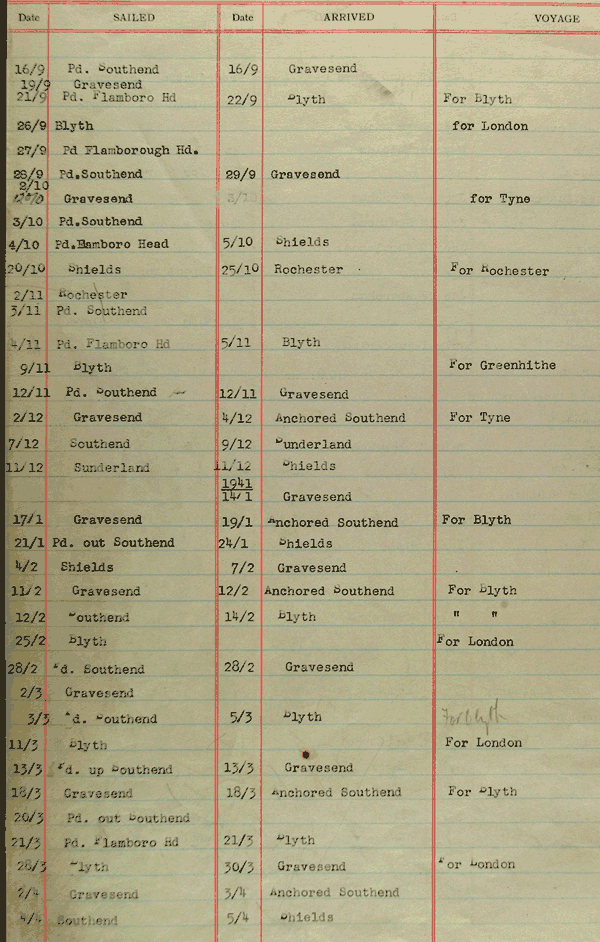 Date SAILED Date ARRIVED VOYAGE
16/9 Pd. Southend 16/9 Gravesend
19/9 Gravesend
21/9 Pd. Flamboro Hd 22/9 Blyth For Blyth
26/9 Blyth for London
27/9 Pd Flamborough Hd.
28/9 Pd.Southend 29/9 Gravesend
2/10
Gravesend 3/10 for Tyne
3/10 Pd.Southend
4/10 Pd.Hamboro Head 5/10 Shields
20/10 Shields 25/10 Rochester For Rochester
2/11 Rochester
3/11 Pd. Southend
4/11 Pd. Flamboro Hd 5/11 Blyth
9/11 Blyth For Greenhithe
12/11 Pd. Southend 12/11 Gravesend
2/12 Gravesend 4/12 Anchored Southend For Tyne
7/12 Southend 9/12 Sunderland
11/12 Sunderland 11/12 Shields
1941
14/1 Gravesend
17/1 Gravesend 19/1 Anchored Southend For Blyth
21/1 Pd. out Southend 24/1 Shields
4/2 Shields 7/2 Gravesend
11/2 Gravesend 12/2 Anchored Southend For Blyth
12/2 Southend 14/2 Blyth " "
25/2 Blyth For London
28/2 Pd. Southend 28/2 Gravesend
2/3 Gravesend
3/3 Pd. Southend 5/3 Blyth For blyth
11/3 Blyth For London
13/3 Pd. up Southend 13/3 Gravesend
18/3 Gravesend 18/3 Anchored Southend For Blyth
20/3 Pd. out Southend
21/3 Pd. Flamboro Hd 21/3 Blyth
28/3 Blyth 30/3 Gravesend For London
2/4 Gravesend 3/4 Anchored Southend
4/4 Southend 5/4 Shields